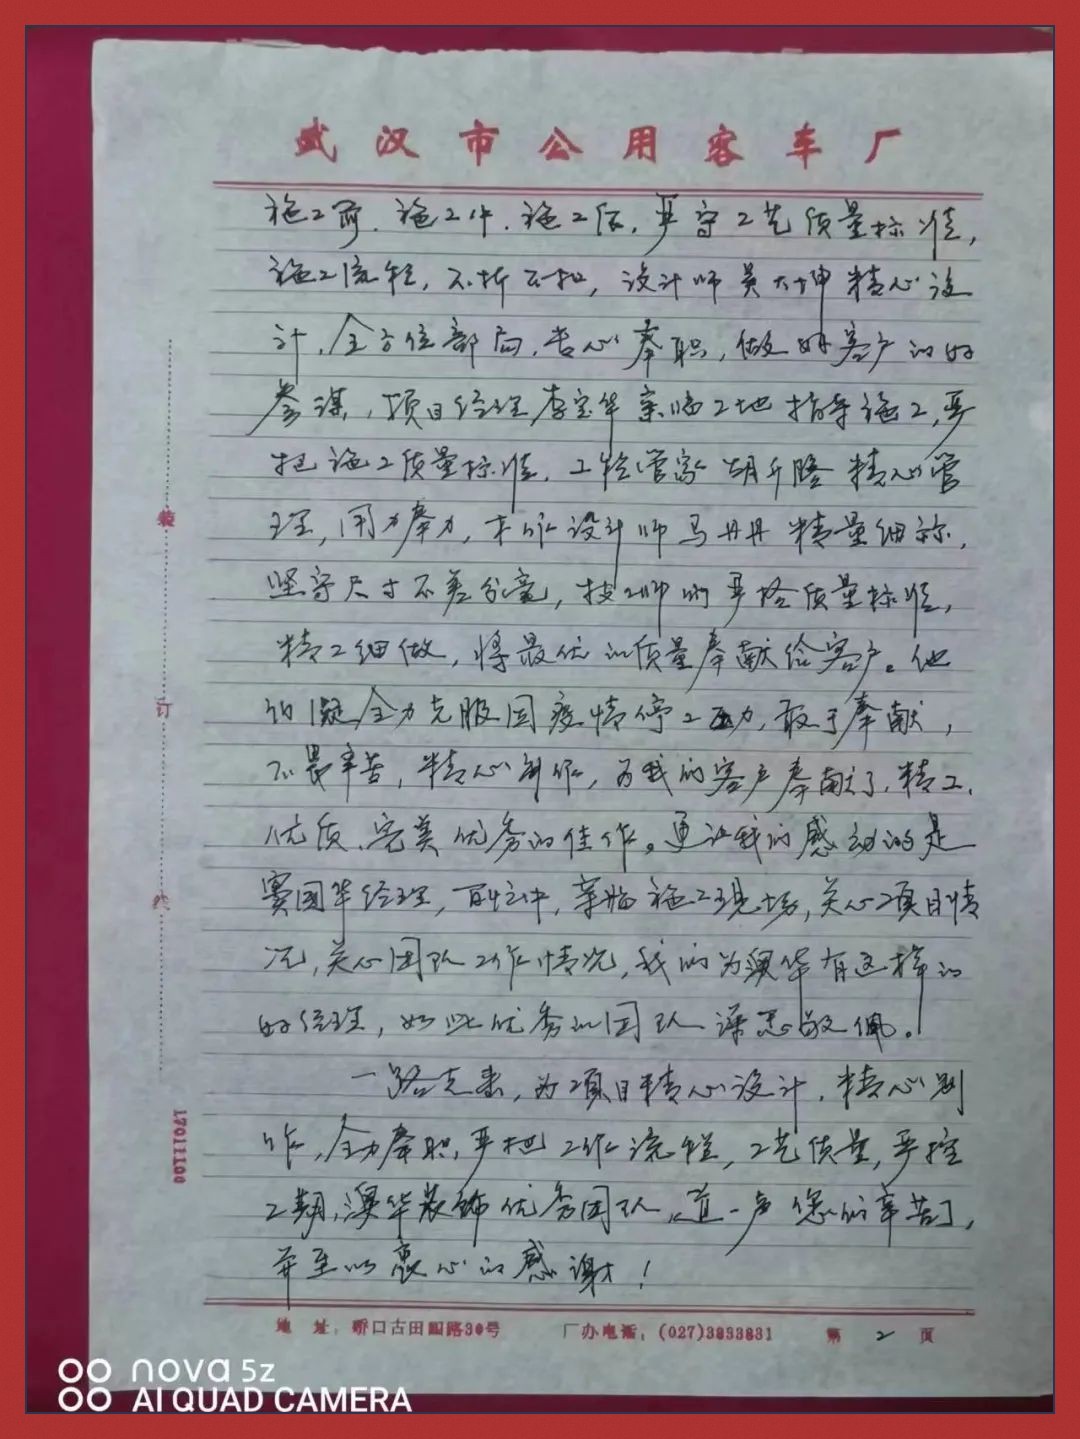 武汉市公用客车厂
施工前、施工中、施工后,严守工艺质量标准,
施工流程,不折不扣,设计师吴大坤精心设
计,全方位部局,尽心奉职,做好客户的好
参谋,项目经理李宝华亲临工地指导施工,严
把施工质量标准,工程管家胡升隆精心管
理,用力奉力,木作设计师马丹丹精量细称,
坚守尺寸不差分毫,技师们严控质量标准,
精工细做,将最优的质量奉献给客户。他
们凝全力克服因疫情停工压力,敢于奉献,
不畏辛苦,精心制作,为我们客户奉献了,精工、
优质、完美优秀的佳作。更让我们感动的是
窦国华经理,百忙中,亲临施工现场,关心项目情
况,关心团队工作情况,我们为澳华有这样的
好经理,如此优秀的团队深表敬佩。
一路走来,为项目精心设计,精心制
作,全力奉职,严把工作流程,工艺质量,严控
工期,澳华装饰优秀团队,道一声您们辛苦了,
并至以衷心的感谢!
装
订
线
1701110
地 址:硚口古田四路30号 厂办电话:(027)3833831 第 2 页
nova 5z
AI QUAD CAMERA